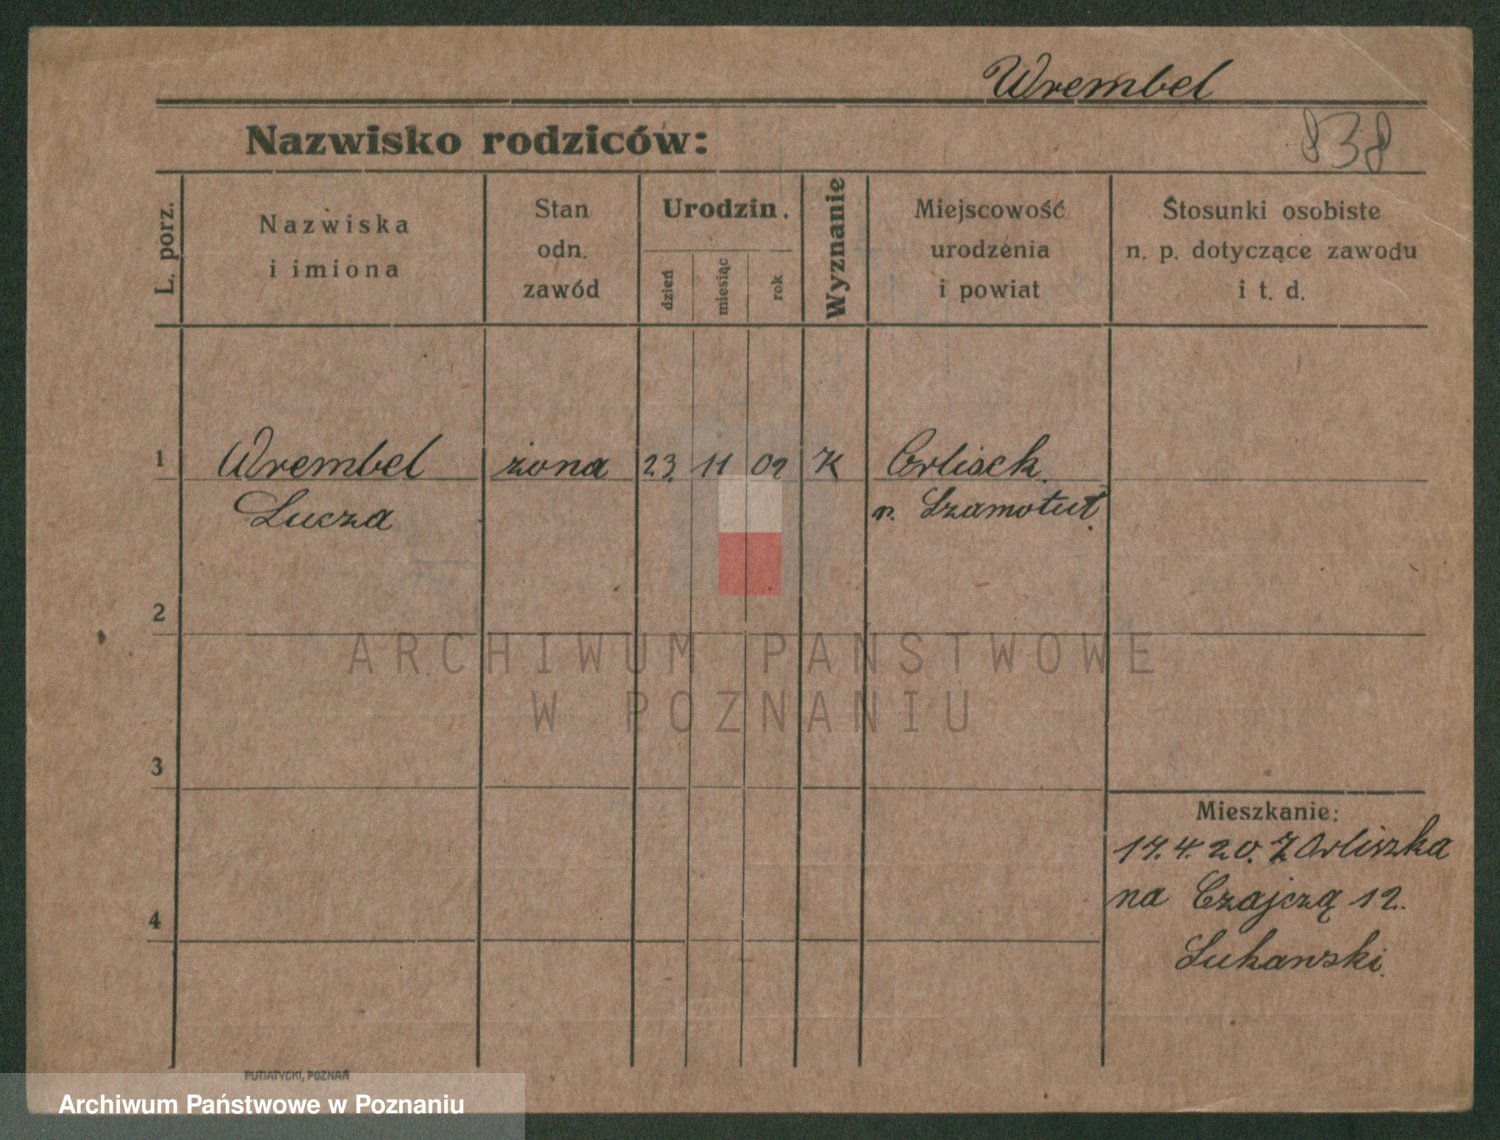 Wrembel
838
Nazwisko rodziców:
L. porz.
Nazwiska
i imiona
Stan
odn.
zawód
Urodzin.
dzień
miesiąc
rok
Wyznanie
Miejscowość
urodzenia
i powiat
Stosunki osobiste
n. p. dotyczące zawodu
i t. d.
1 Wrembel żona 23. 11 02 K
Łucza
p. Szamotuł.
2
3
4
Mieszkanie:
17.4.20. Z Orliszka
na Czajczą 12.
Lukawski.
PUTIATYCKI, POZNAŃ
ARCHIWUM PAŃSTWOWE
W POZNANIU
Archiwum Państwowe w Poznaniu